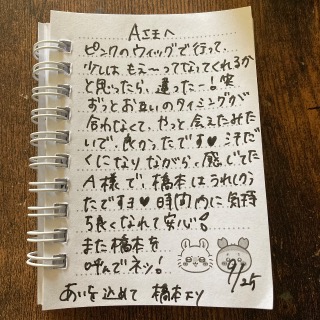 A正へ
ピンクのウィッグで行って、
少しはもえ〜ってなってくれるか
と思ったら、違ったー!笑
ずっとお互いのタイミングが
合わなくて、やっと会えたみたい
で、良かったです♥汗だ
くになりながら、感じてた
A様で、橋本はうれしかっ
たですヨ♥時間内に気持
ち良くなれて安心!
また橋本を
呼んでネッ!
9/25
あいを込めて 橋本より